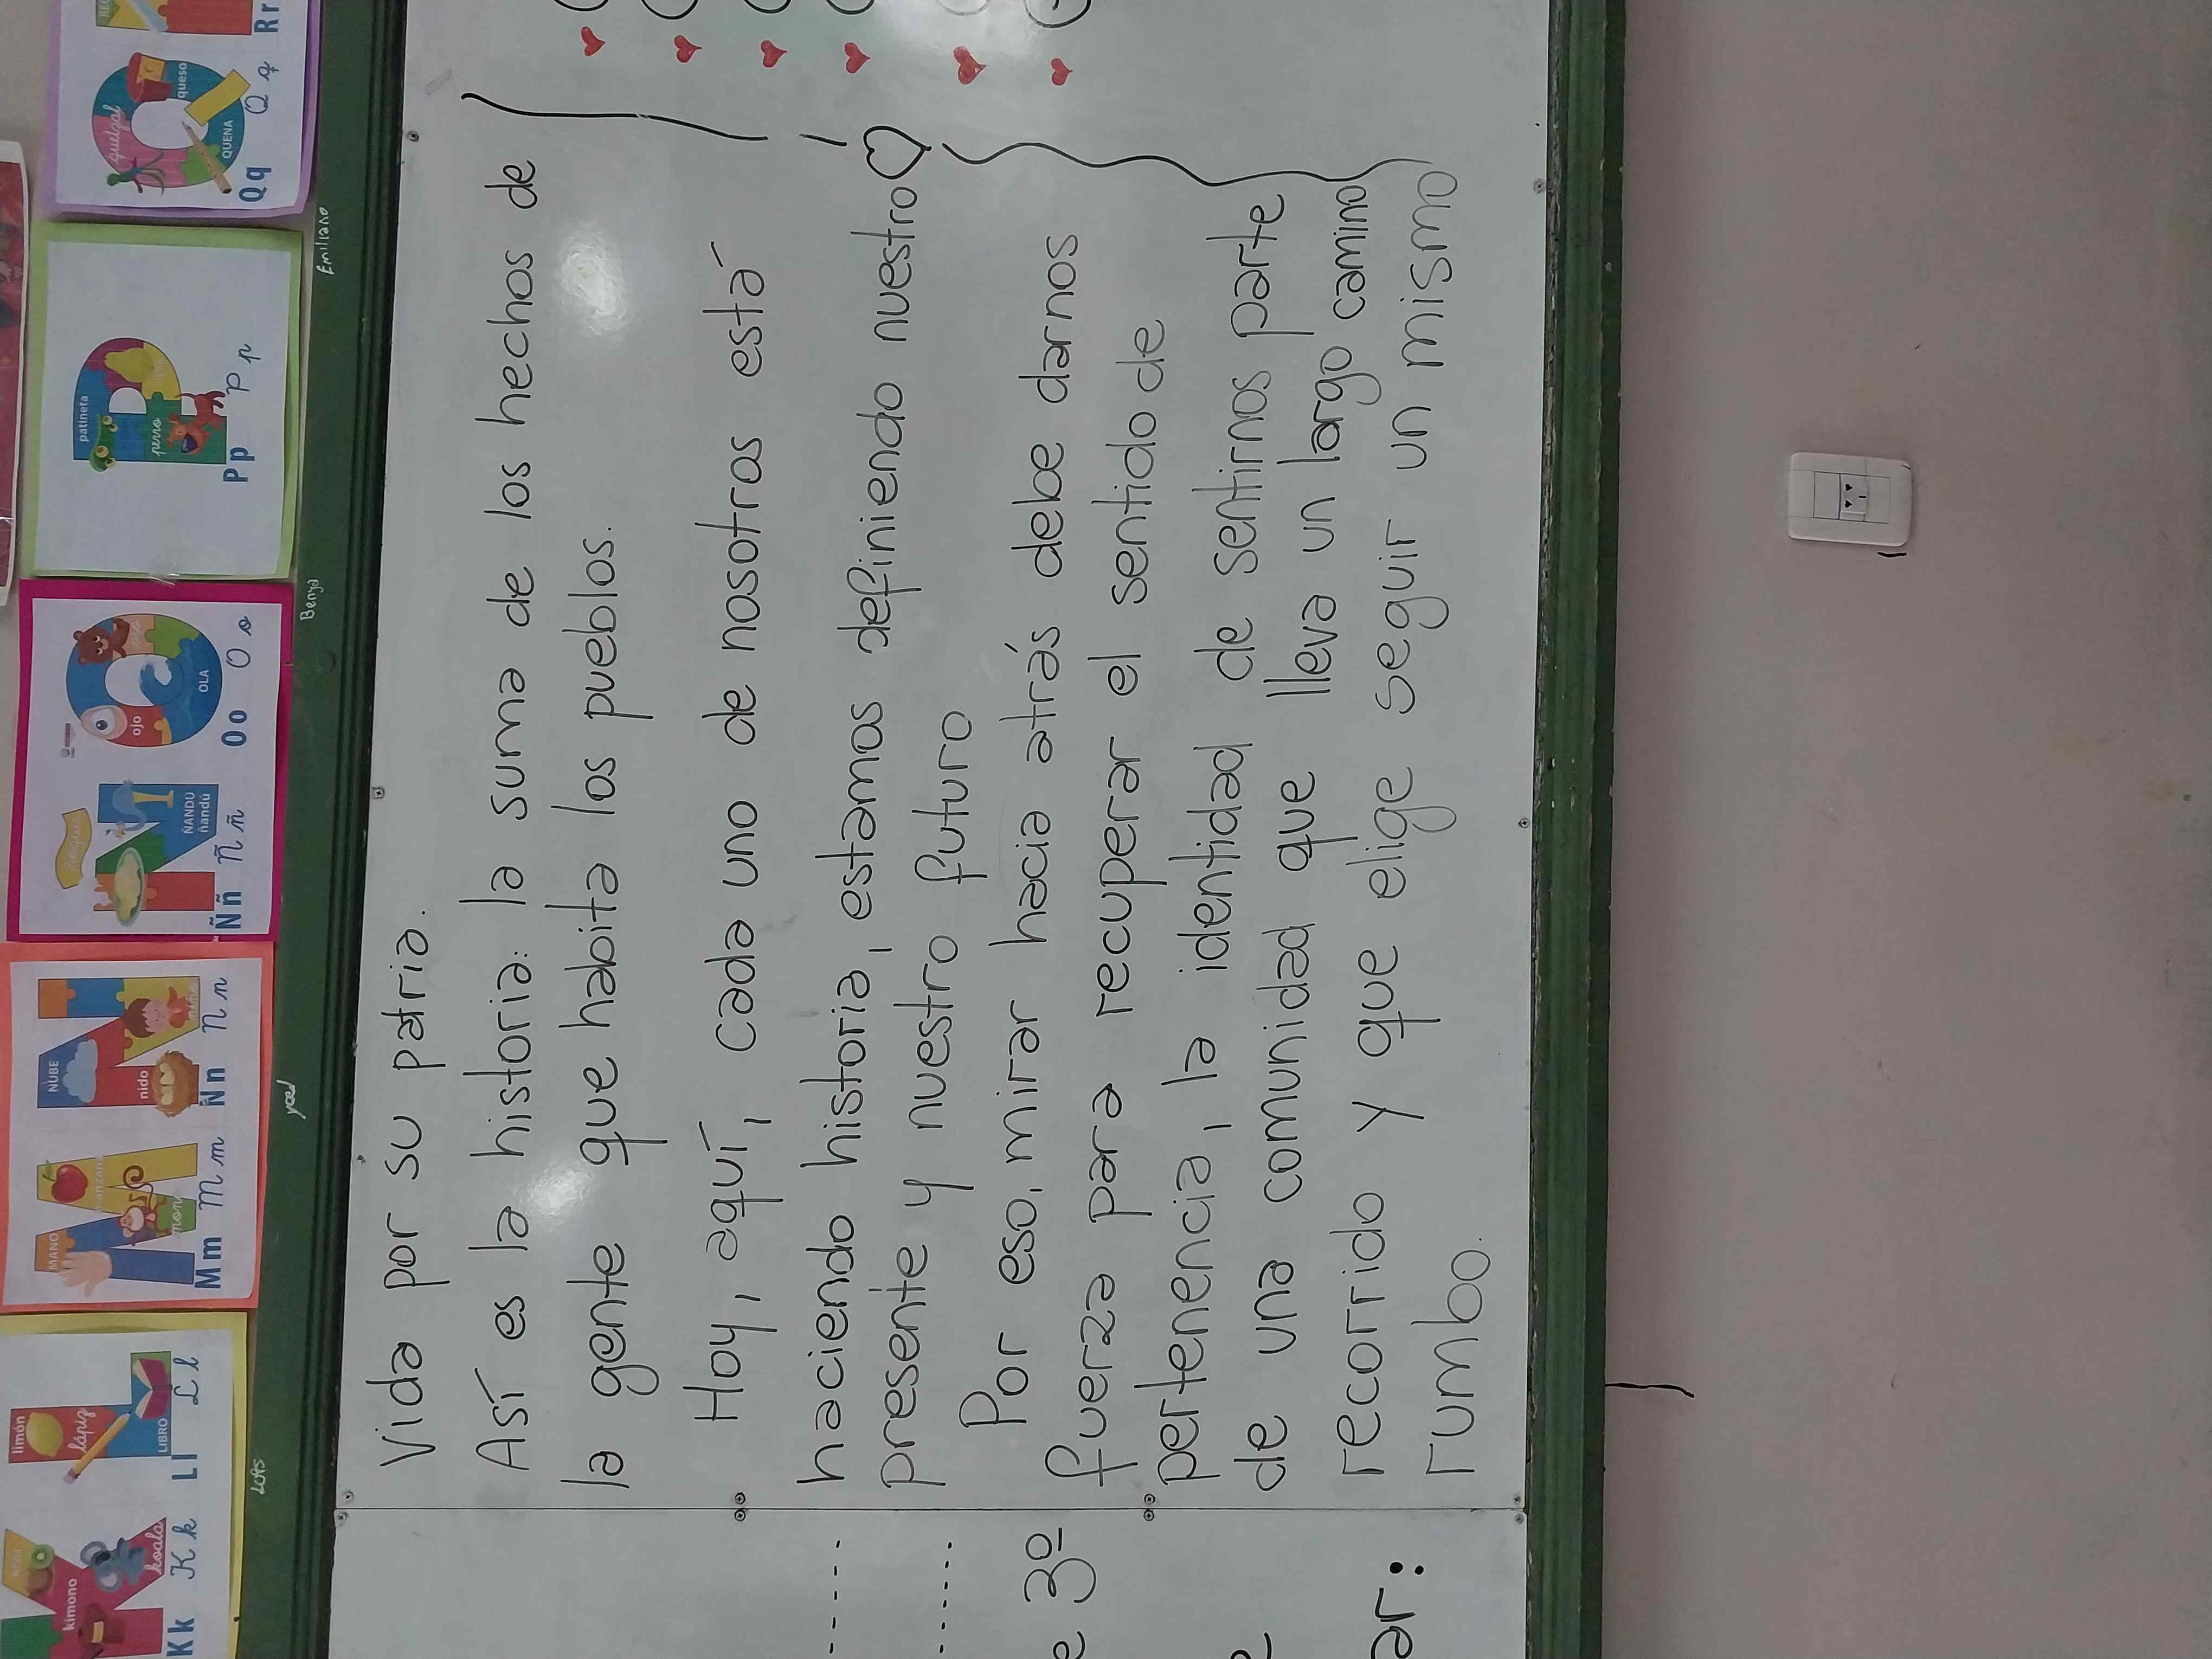 limón
lápiz
LIBRO
Ll
kimono
koala
Kk
MANO
Mm
NUBE
nido
Nn
ÑANDU
ñandú
Ññ Ñ ñ
ojo
OLA
Oo O o
patineta
perro
Pp P p
quetzal
queso
QUENA
Qq Q q
Rr
Luis
Benja
Emiliano
Vida por su patria.
Así es la historia: la suma de los hechos de
la gente que habita los pueblos.
Hoy, aquí, cada uno de nosotros está
haciendo historia, estamos definiendo nuestro
presente y nuestro futuro
Por eso, mirar hacia atrás debe darnos
fuerza para recuperar el sentido de
pertenencia, la identidad de sentirnos parte
de una comunidad que lleva un largo camino
recorrido y que elige seguir un mismo
rumbo.
e 3º
ar: